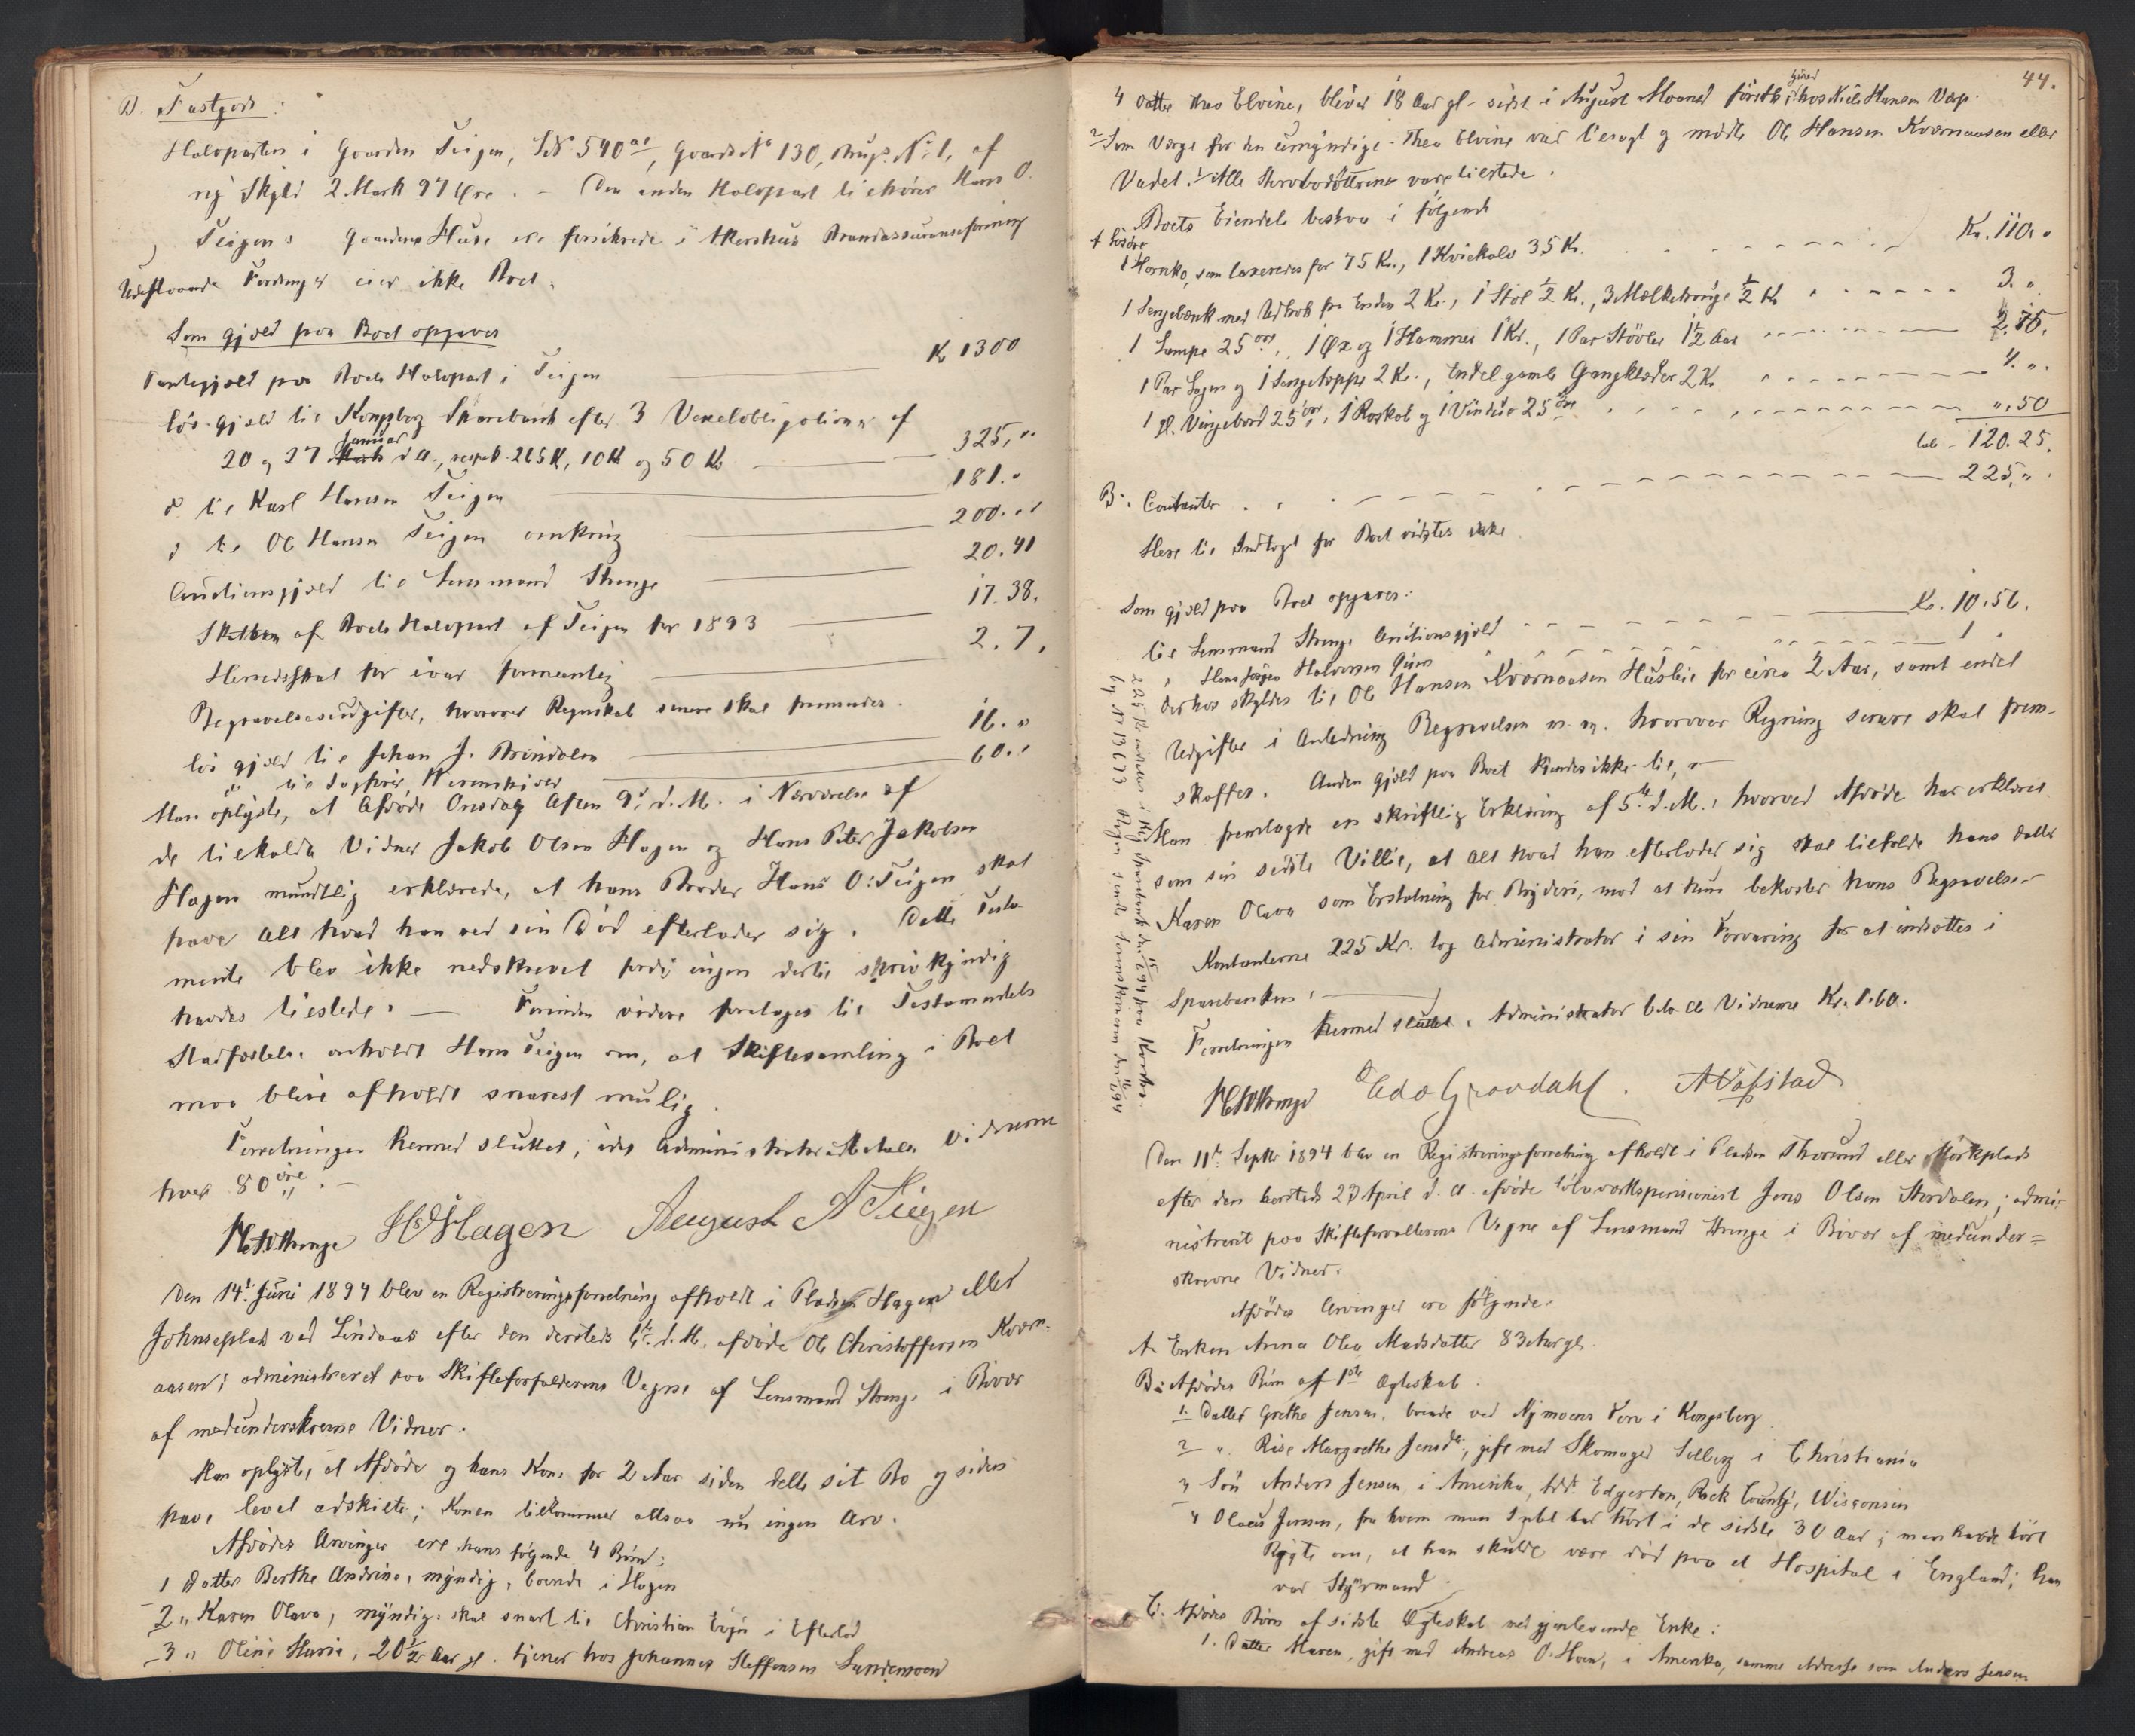 D. Fastgods:
Halvparten i Gaarden Teigen, LN° 540 ae, Gaards N° 130, Brugs N° 1, af
ny Skyld 2 Mark 97 Øre. - Den anden Halvpart tilhører Hans O.
Teigen. Gaardens Huse ere forsikrede i Akershus Brandassuranceforening
Udestaaende Fordringer eier ikke Boet.
Som gjæld paa Boet opgaves
Pantegjæld paa Boets Halvpart i Teigen K 1300
løs gjæld til Kongsberg Sparebank efter 3 Vexelobligationer af
20 og 27 Januar d. A., respek. 265 K, 10 K og 50 Kr 325,"
d. til Karl Hansen Teigen 181."
d til Ole Hansen Teigen omkring 200."
Auctionsgjæld til Lensmand Strenge 20.41
Skatten af Boets Halvpart af Teigen for 1893 17.38.
Herredsskat for ivar formentlig 2.7.
Begravelsesudgifter, hvorover Regnskab senere skal fremsendes.
løs gjæld til Johan J. Brindalen 16."
" til Sophie Werenskiold 60."
Man oplyste, at Afdøde Onsdag Aften 9d d. M. i Nærværelse af
de tilkaldte Vidner Jakob Olsen Hagen og Hans Peter Jakobsen
Hagen mundtlig erklærede, at hans Broder Hans O. Teigen skal
have alt hvad han ved sin Død efterlader sig. Dette Testa
mente blev ikke nedskrevet fordi ingen dertil skrivkyndig
havdes tilstede. — Forinden videre foretages til Testamentets
Stadfæstelse anholdt Hans Teigen om, at Skiftesamling i Boet
maa blive afholdt snarest mulig.
Forretningen hermed sluttet, idet Administrator udbetalte Vidnerne
hver 80 øre. -
Strenge H J Hagen August A Teigen
Den 14. Juni 1894 blev en Registreringsforretning afholdt i Pladsen Hagen eller
Johnseplads ved Lindaas efter den dersteds 6te d. M. afdøde Ole Christoffersen Kværn-
aasen; administreret paa Skifteforvalterens Vegne af Lensmand Strenge i Bivær
af medunderskrevne Vidner.
Man oplyste, at Afdøde og hans Kone for 2 Aar siden delte sit Bo og siden
have levet adskilte; Konen tilkommer altsaa nu ingen Arv.
Afdødes Arvinger ere hans følgende 4 Børn:
1 Datter Berthe Andrine, myndig, boende i Hagen
2 " Karen Olava, myndig: skal snart til Christian Teien i Efteløt
3 " Oline Marie, 20½ Aar gl. tjener hos Johannes Steffensen Sundemoen
44.
4 Datter Thea Elvine, bliver 18 Aar gl. sidst i August Maaned førstk; tjener hos Niels Hansen Værp.
Som Værge for den umyndige Thea Elvine var tilsagt og mødte Ole Hansen Kværnaasen eller
Vadet. Alle Stervbodøttrene vare tilstede.
Boets Eiendele bestaa i følgende
A Løsøre
1 Hornko, som taxeredes for 75 Kr., 1 Kviekalv 35 Kr. Kr. 110."
1 Sengebænk med Udtræk fra Enden 2 Kr., 1 Stol ½ Kr., 3 Melketringe ½ Kr 3."
1 Lampe 25 øre, 1 Øx og 1 Hammer 1 Kr., 1 Par Støvler 1½ Kr 2.75.
1 Par Lagen og 1 Sengeteppe 2 Kr., Endel gamle Gangklæder 2 Kr 4.".
1 gl. Vingebord 25 øre, 1 Roskab og 1 Vindue 25 øre ",50
lalt 120.25.
B. Contanter 225,"
Mere til Indtægt for Boet vidstes ikke.
Som gjæld paa Boet opgaves:
til Lensmand Strenge Auctionsgjæld Kr. 10.56.
" Hans Jørgen Halvorsen 1 "
Derhos skyldes til Ole Hansen Kværnaasen Husleie for circa 2 Aar, samt endel
Udgifter i Anledning Begravelsen m. m. hvorover Regning senere skal frem-
skaffes. Anden gjæld paa Boet kjendes ikke til, -
Man fremlagde en skriftlig Erklæring af 5te d. M., hvorved Afdøde har erklæret
som sin sidste Villie, at alt hvad han efterlader sig skal tilfalde hans Datter
Karen Olava som Erstatning for Bryderi, mod at hun bekoster hans Begravelse.
Kontanterne 225 Kr. tog Administrator i sin Forvaring for at indsættes i
Sparebanken.
Forretningen hermed sluttet. Administrator betalte Vidnerne Kr. 1.60.
225 Kr. indsattes i Kbg Sparebank den 15/6 94 paa Kontra-
bog N° 13673. Bogen sendt Sorenskriveren den 16/6 94
Strenge Edv Graadahl. A Vafstad
Den 11te Septbr 1894 blev en Registreringsforretning afholdt i Pladsen Thorrud eller Mørkplads
efter den hersteds 23 April d. A. afdøde Sølvværkspensionist Jens Olsen Stordalen; admi-
nistreret paa Skifteforvalterens Vegne af Lensmand Strenge i Bivær af medunder=
skrevne Vidner.
Afdødes Arvinger ere følgende:
A. Enken Anna Olea Madsdatter 83 Aar gl.
B: Afdødes Børn af 1ste Ægteskab.
1. Datter Grethe Jensen, boende ved Nymoens Torv i Kongsberg
2 " Rise Margrethe Jensdtr., gift med Skomager Solberg i Christiania
3 Søn Anders Jensen, i Amerika, Adr. Edgerton, Rock County, Wisconsin
4 Olaus Jensen, fra hvem man Intet har hørt i de sidste 30 Aar; man havde hørt
Rygte om, at han skulde være død paa et Hospital i England; han
var Styrmand
C. Afdødes Børn af sidste Ægteskab med gjenlevende Enke:
1. Datter Maren, gift med Andreas O. Moen, i Amerika, samme Adresse som Anders Jensen